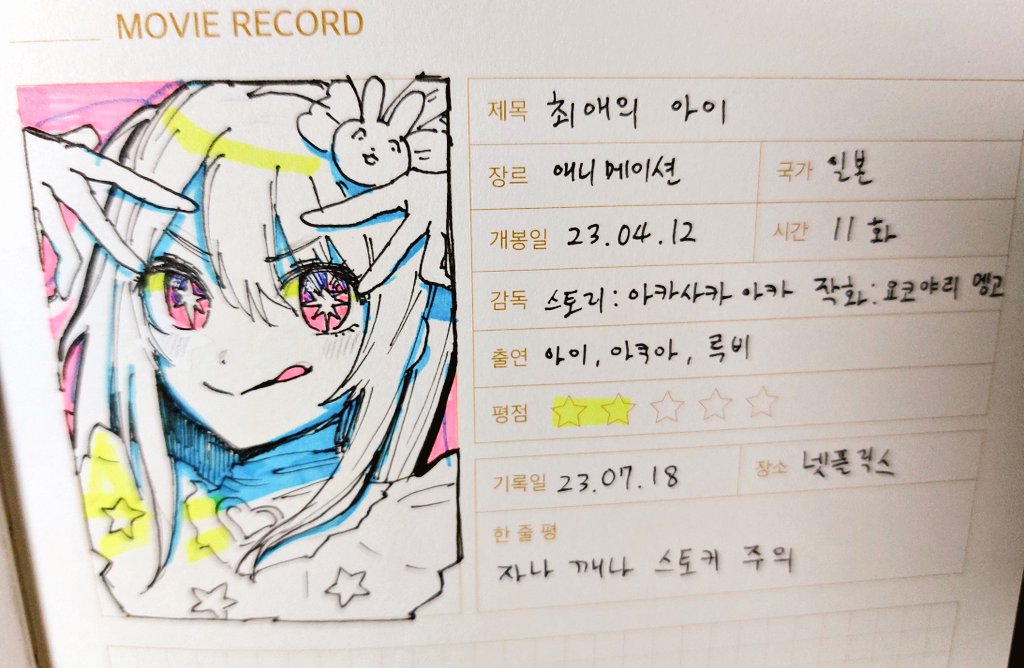 MOVIE RECORD
제목 최애의 아이
장르 애니메이션 국가 일본
개봉일 23.04.12 시간 11화
감독 스토리: 아카사카 아카 작화: 요코야리 멩고
출연 아이, 아쿠아, 루비
평점
기록일 23.07.18 장소 넷플릭스
한 줄 평
자나 깨나 스토커 주의